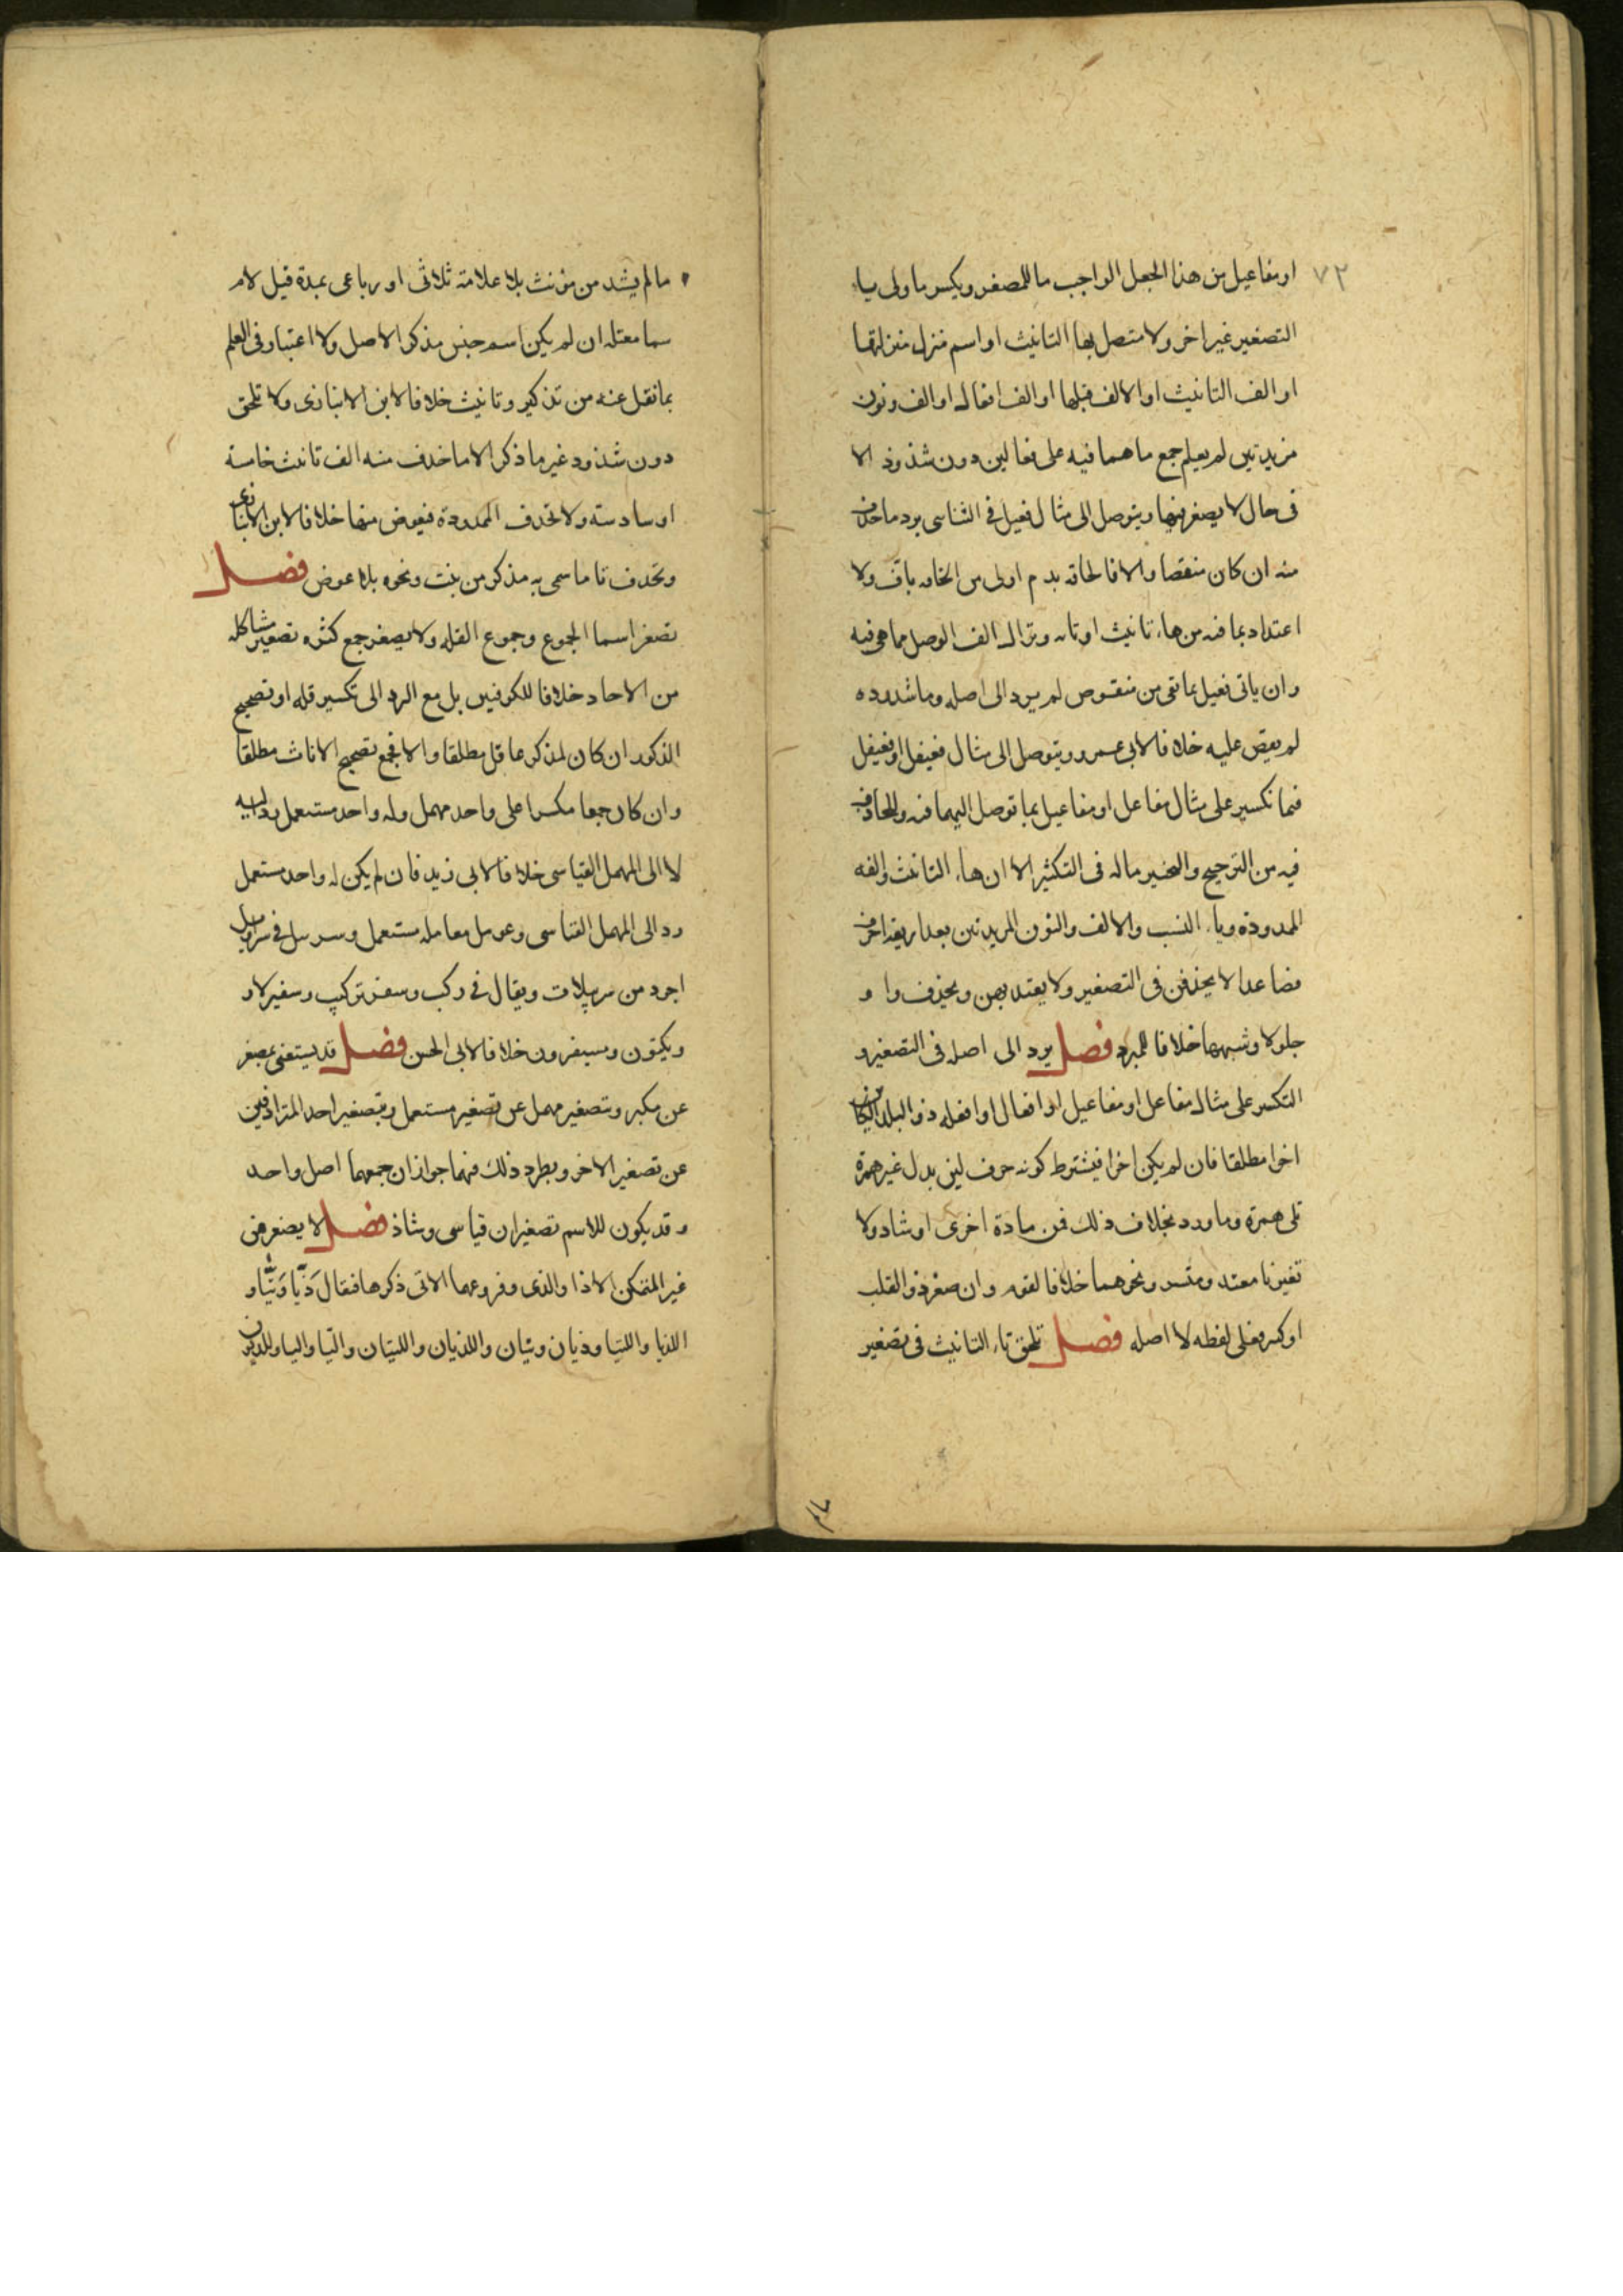 ٧٢
او مفاعيل من هذا الجعل الواجب ما للمصغر ويكسر ما ولى يا
التصغير غير اخر ولا متصل بها التانيث او اسم منزل منزلتها
او الف التانيث او الالف قبلها او الف افعال او الف ونون
مزيدتين لم يعلم جمع ما هما فيه على فعالين دون شذوذ الا
فى حال لا يصغر فيها ويتوصل الى مثال فعيل فى الثناسى برد ما حذف
منه ان كان منقصا والا فالحاقه بدم اولى من الحاقه باف ولا
اعتداد بما فيه من هاء تانيث او تائه وتزال الف الوصل مما هى فيه
وان ياتى فعيل بما تقى من منقوص لم يرد الى اصله وما شذ رده
لم يقس عليه خلافا لابى عمرو ويتوصل الى مثال فعيعل او فعيعيل
فيما تكسير على مثال مفاعل او مفاعيل بما توصل اليهما فيه وللحاذف
فيه من الترجيح والتخيير ماله فى التكثير الا ان هاء التانيث والفه
الممدودة وياء النسب والالف والنون المزيدتين بعد اربعة احرف
فصاعدا لا يحذفن فى التصغير ولا يعتد بهن ويحذف واو
جلولا وشبهها خلافا للمبرد فصل يرد الى اصله فى التصغير و
التكسر على مثال مفاعل او مفاعيل او افعال او افعله ذو البدل الكائن
اخرا مطلقا فان لم يكن اخرا فيشترط كونه حرف لين بدل غير همزة
تلى همزة وما ورد بخلاف ذلك فمن مادة اخرى او شاد ولا
تغير تا معتد ومتسر ونحوهما خلافا لقوم وان صغر ذو القلب
او كسر فعلى لفظه لا اصله فصل تلحق تاء التانيث فى تصغير
ما لم يشد من مؤنث بلا علامة ثلاثى او رباعى بمدة قبل لام
سما معتله ان لم يكن اسم جنس مذكر الاصل ولا اعتبار فى العلم
بما نقل عنه من تذكير وتانيث خلافا لابن الانبارى ولا تلحق
دون شذود غير ما ذكر الا ما حذف منه الف تانيث خامسة
او سادسته ولا تحذف الممدودة فيعوض منها خلافا لابن الانبارى
وتحذف تا ما سمى به مذكر من بنت ونحوه بلا عوض فصل
تصغر اسما الجموع وجموع القله ولا يصغر جمع كثره تصغير مشاكله
من الاحاد خلافا للكوفيين بل مع الرد الى تكسير قله او تصحيح
الذكور ان كان لمذكر عاقل مطلقا والا فجمع تصحيح الاناث مطلقا
وان كان جمعا مكسرا على واحد مهمل وله واحد مستعمل رد اليه
لا الى المهمل القياسى خلافا لابى زيد فان لم يكن له واحد مستعمل
رد الى المهمل القياسى وعومل معامله مستعمل وسرييل فى سراويل
اجود من سرييلات ويقال فى ركب وسفر تركيب وسفير لا و
ويكبون ومسيفرون خلافا لابى الحسن فصل قد يستغنى بمصغر
عن مكبر وتصغير مهمل عن تصغير مستعمل وبتصغير احد المترادفين
عن تصغير الاخر ويطرد ذلك فيهما جوازا ان جمعهما اصل واحد
وقد يكون للاسم تصغيران قياسى وشاذ فصل لا يصغر من
غير المتمكن الا ذا والذى وفروعهما الاتى ذكرها فقال ذَيّا وَتَيّا و
اللذيا واللتيا وذيان وتيان واللذيان واللتيان والتيا واليا واللذيون